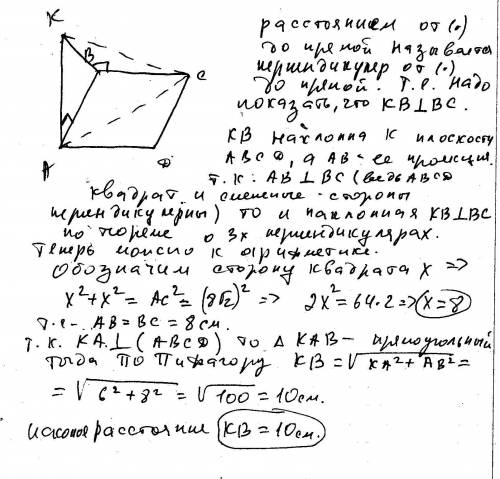 K
B
C
A
D
расстоянием от (·)
до прямой называется
перпендикуляр от (·)
до прямой. т.е. надо
показать, что KB⊥BC.
KB наклонна к плоскости
ABCD, а AB - ее проекция.
т.к. AB⊥BC (ведь ABCD
квадрат и смежные стороны
перпендикулярны) то и наклонная KB⊥BC
по теореме о 3х перпендикулярах.
Теперь можно к арифметике.
Обозначим сторону квадрата x =>
x²+x² = AC² = (8√2)² => 2x² = 64·2 => x=8
т.е. AB=BC = 8см.
т.к. KA⊥(ABCD) то Δ KAB - прямоугольный
тогда по Пифагору KB = √KA²+AB² =
= √6²+8² = √100 = 10см.
искомое расстояние KB = 10см.